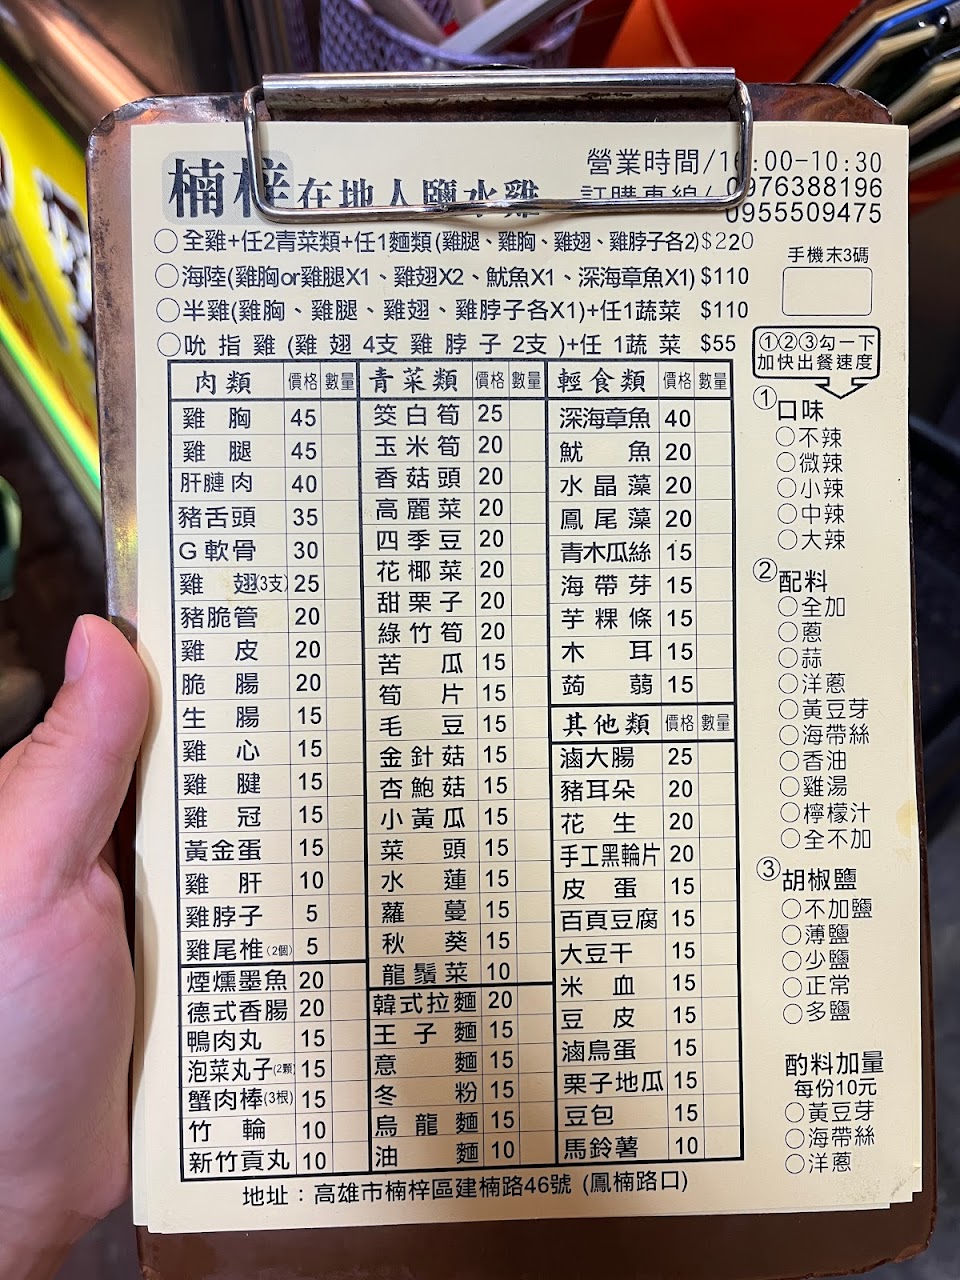 營業時間/16:00-10:30
楠梓在地人鹽水雞 訂購專線/ 0976388196
0955509475
○全雞+任2青菜類+任1麵類(雞腿、雞胸、雞翅、雞脖子各2)$220
○海陸(雞胸or雞腿X1、雞翅X2、魷魚X1、深海章魚X1) $110
○半雞(雞胸、雞腿、雞翅、雞脖子各X1)+任1蔬菜 $110
○吮指雞(雞翅4支雞脖子2支)+任1蔬菜 $55
手機末3碼
①②③勾一下
加快出餐速度
肉類 價格 數量
雞胸 45
雞腿 45
肝膢肉 40
豬舌頭 35
G軟骨 30
雞翅(3支) 25
豬脆管 20
雞皮 20
脆腸 20
生腸 15
雞心 15
雞腱 15
雞冠 15
黃金蛋 15
雞肝 10
雞脖子 5
雞尾椎(2個) 5
煙燻墨魚 20
德式香腸 20
鴨肉丸 15
泡菜丸子(2顆) 15
蟹肉棒(3根) 15
竹輪 10
新竹貢丸 10
青菜類 價格 數量
筊白筍 25
玉米筍 20
香菇頭 20
高麗菜 20
四季豆 20
花椰菜 20
甜栗子 20
綠竹筍 20
苦瓜 15
筍片 15
毛豆 15
金針菇 15
杏鮑菇 15
小黃瓜 15
菜頭 15
水蓮 15
蘿蔓 15
秋葵 15
龍鬚菜 10
韓式拉麵 20
王子麵 15
意麵 15
冬粉 15
烏龍麵 15
油麵 10
輕食類 價格 數量
深海章魚 40
魷魚 20
水晶藻 20
鳳尾藻 20
青木瓜絲 15
海帶芽 15
芋粿條 15
木耳 15
蒟蒻 15
其他類 價格 數量
滷大腸 25
豬耳朵 20
花生 20
手工黑輪片 20
皮蛋 15
百頁豆腐 15
大豆干 15
米血 15
豆皮 15
滷鳥蛋 15
栗子地瓜 15
豆包 15
馬鈴薯 10
①口味
○不辣
○微辣
○小辣
○中辣
○大辣
②配料
○全加
○蔥
○蒜
○洋蔥
○黃豆芽
○海帶絲
○香油
○雞湯
○檸檬汁
○全不加
③胡椒鹽
○不加鹽
○薄鹽
○少鹽
○正常
○多鹽
酌料加量
每份10元
○黃豆芽
○海帶絲
○洋蔥
地址：高雄市楠梓區建楠路46號 (鳳楠路口)